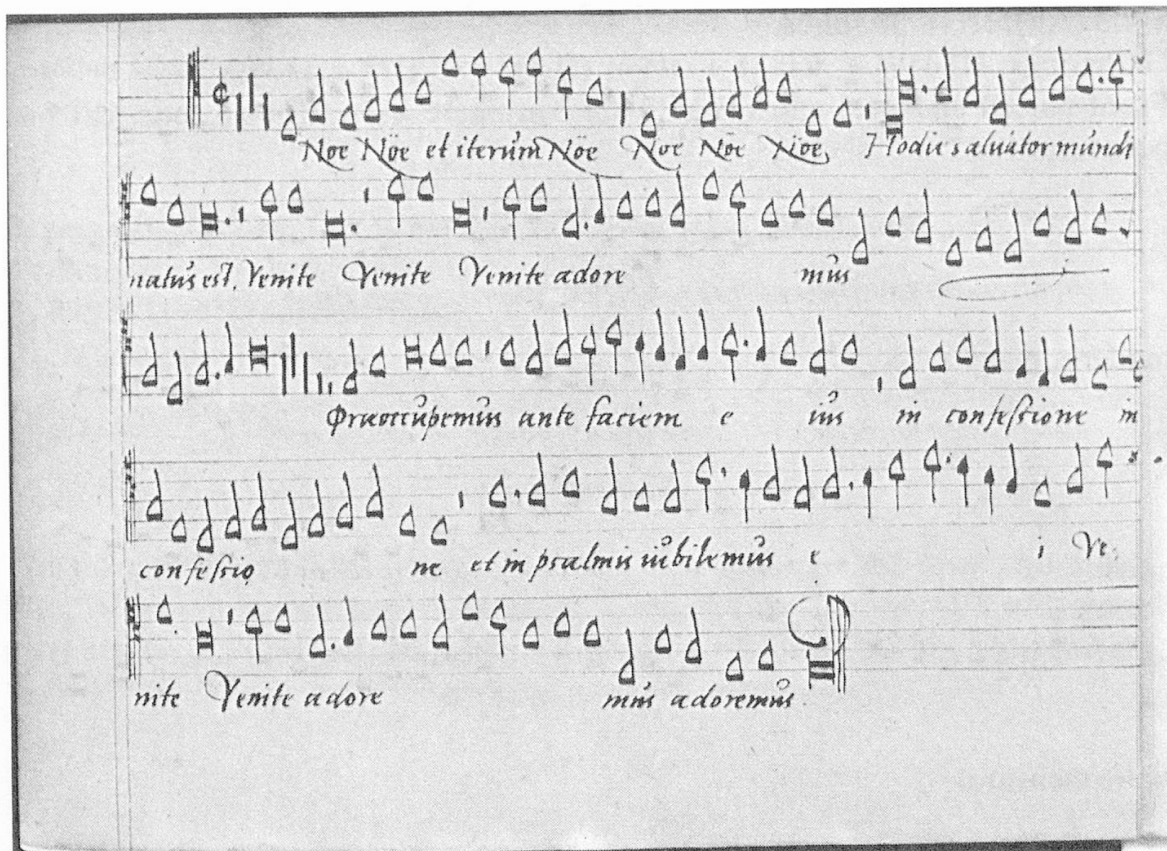 Noe Noe et iterum Noe Noe Noe Noe, Hodie saluator mundi
natus est, Venite Venite Venite adore mus
Praeoccupemus ante faciem e ius in confessione in
confessio ne et in psalmis iubilemus e i Ve
nite Venite adore mus adoremus